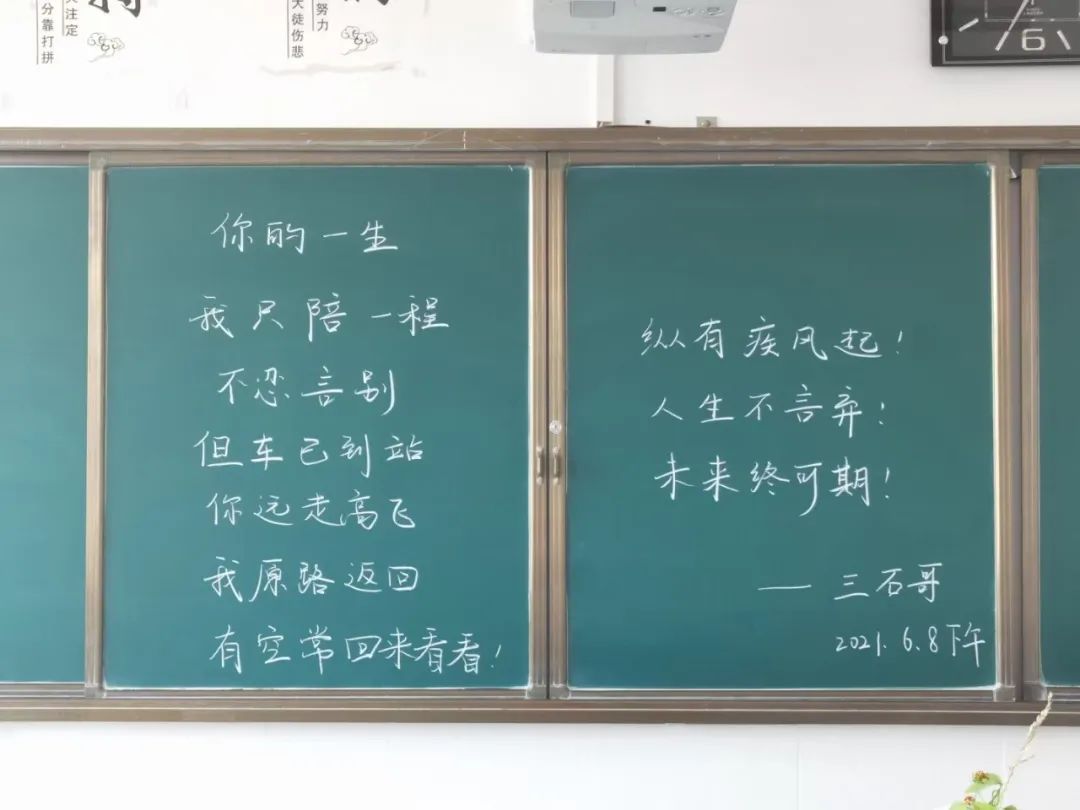 分靠打拼
天注定
大徒伤悲
努力
6
你的一生
我只陪一程
不忍言别
但车已到站
你远走高飞
我原路返回
有空常回来看看！
纵有疾风起！
人生不言弃！
未来终可期！
—— 三石哥
2021.6.8下午